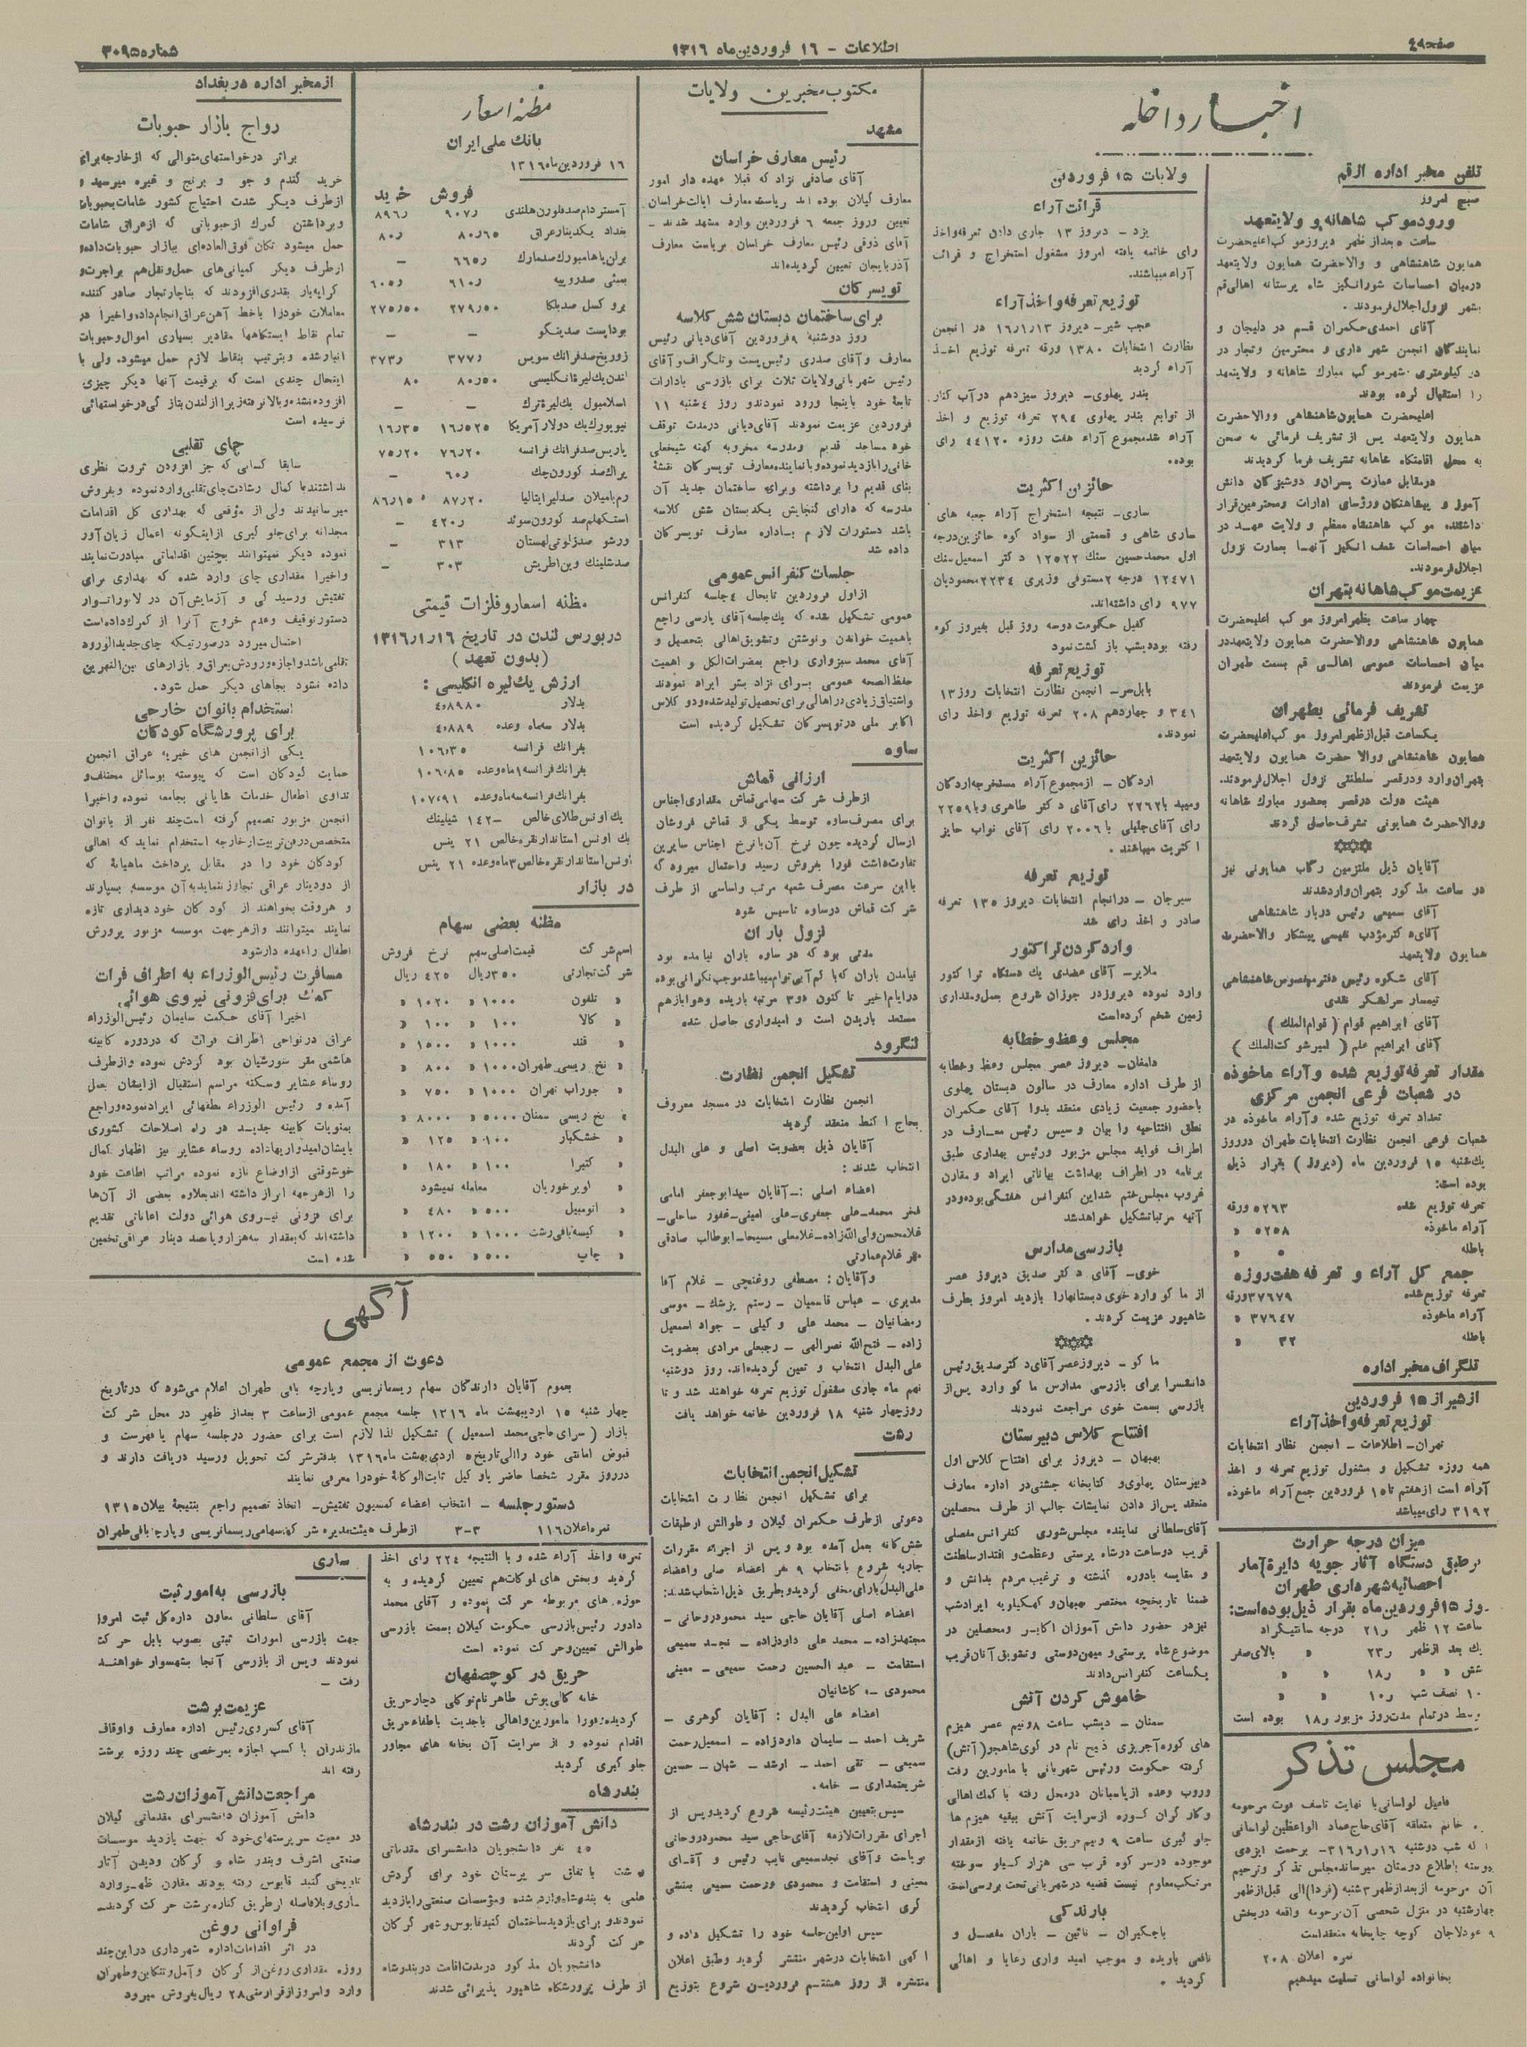 صفحه ٤
اطلاعات - ١٦ فروردین ماه ١٣١٦
شماره ٣٠٩٥
اخبار داخله
تلفن مخبر اداره از قم
صبح امروز
ورود موکب شاهانه و ولایتعهد
ساعت ٥ بعد از ظهر دیروز موکب اعلیحضرت
همایون شاهنشاهی و والاحضرت همایون ولایتعهد
درمیان احساسات شورانگیز شاه پرستانه اهالی قم
بشهر نزول اجلال فرمودند.
آقای احمدی حکمران قسم در دلیجان و
نمایندگان انجمن شهرداری و محترمین و تجار در
کیلومتری شهر موکب مبارک شاهانه و ولایتعهد
را استقبال کرده بودند
اعلیحضرت همایون شاهنشاهی و والاحضرت
همایون ولایتعهد پس از تشریف فرمائی به صحن
به محل اقامتگاه شاهانه تشریف فرما گردیدند
درمقابل عمارت پسران و دوشیزگان دانش
آموز و پیشاهنگان ورؤسای ادارات ومحترمین قرار
داشتند موکب شاهنشاه معظم و ولایت عهد در
میان احساسات شعف انگیز آنها بعمارت نزول
اجلال فرمودند.
عزیمت موکب شاهانه بتهران
چهار ساعت بظهر امروز موکب اعلیحضرت
همایون شاهنشاهی ووالاحضرت همایون ولایتعهد در
میان احساسات عمومی اهالی قم بسمت طهران
عزیمت فرمودند
تشریف فرمائی بطهران
یکساعت قبل از ظهر امروز موکب اعلیحضرت
همایون شاهنشاهی ووالا حضرت همایون ولایتعهد
بتهران وارد ودر قصر سلطنتی نزول اجلال فرمودند.
هیئت دولت در قصر بحضور مبارک شاهانه
ووالاحضرت همایونی تشرف حاصل کردند
آقایان ذیل ملتزمین رکاب همایونی نیز
در ساعت مذکور بتهران وارد شدند
آقای سمیعی رئیس دربار شاهنشاهی
آقای دکتر مؤدب نفیسی پیشکار والاحضرت
همایون ولایتعهد
آقای شکوه رئیس دفتر مخصوص شاهنشاهی
تیمسار سرلشکر نقدی
آقای ابراهیم قوام ( قوام الملک )
آقای ابراهیم علم ( امیر شوکت الملک )
مقدار تعرفه توزیع شده و آراء ماخوذه
در شعبات فرعی انجمن مرکزی
تعداد تعرفه توزیع شده وآراء ماخوذه در
شعبات فرعی انجمن نظارت انتخابات طهران درروز
یکشنبه ١٥ فروردین ماه ( دیروز ) بقرار ذیل
بوده است:
تعرفه توزیع شده ٥٢٦٣ ورقه
آراء ماخوذه ٥٢٥٨ »
باطله ٥ »
جمع کل آراء و تعرفه هفت روزه
تعرفه توزیع شده ٣٧٦٧٩ ورقه
آراء ماخوذه ٣٧٦٤٧ »
باطله ٣٢ »
تلگراف مخبر اداره
از شیراز ١٥ فروردین
توزیع تعرفه و اخذ آراء
تهران - اطلاعات - انجمن نظار انتخابات
همه روزه تشکیل و مشغول توزیع تعرفه و اخذ
آراء است از هفتم تا ١٥ فروردین جمع آراء ماخوذه
٣١٩٢ رای میباشد
میزان درجه حرارت
برطبق دستگاه آثار جویه دایره آمار
احصائیه شهرداری طهران
روز ١٥ فروردین ماه بقرار ذیل بوده است:
ساعت ١٢ ظهر ٢١٫ درجه سانتیگراد
یک بعد از ظهر ٢٣٫ » بالای صفر
شش » » ١٨٫ » »
١٠ نصف شب ١٠٫ » »
وسط در تمام مدت روز مزبور ١٨٫ بوده است
مجلس تذکر
فامیل لواسانی با نهایت تاسف فوت مرحومه
خانم متعلقه آقای حاج عماد الواعظین لواسانی
را که شب دوشنبه ٣١٦/١/١٦ برحمت ایزدی
پیوسته باطلاع دوستان میرساند مجلس تذکر و ترحیم
آن مرحومه از بعد از ظهر ٣ شنبه (فردا) الی قبل از ظهر
چهارشنبه در منزل شخصی آن مرحومه واقعه در بخش
٩ عودلاجان کوچه چاپخانه منعقد است
نمره اعلان ٢٠٨
بخانواده لواسانی تسلیت میدهیم
ولایات ١٥ فروردین
قرائت آراء
یزد - دیروز ١٣ جاری دادن تعرفه واخذ
رای خاتمه یافته امروز مشغول استخراج و قرائت
آراء میباشند.
توزیع تعرفه و اخذ آراء
عجب شیر - دیروز ١٦/١/١٣ در انجمن
نظارت انتخابات ١٣٨٠ ورقه تعرفه توزیع اخذ
آراء گردید
بندر پهلوی - دیروز سیزدهم در آب کنار
از توابع بندر پهلوی ٢٩٤ تعرفه توزیع و اخذ
آراء شد مجموع آراء هفت روزه ٤٤١٢٠ رای
بوده.
حائزین اکثریت
ساری - نتیجه استخراج آراء جعبه های
ساری شاهی و قسمتی از سواد کوه حائزین درجه
اول محمدحسین سنک ١٢٥٢٢ دکتر اسمعیل سنک
١٢٤٧١ درجه ٢ مستوفی وزیری ٢٢٣٤ محمودیان
٩٧٧ رای داشته اند.
کفیل حکومت دوسه روز قبل بفیروز کوه
رفته بود دیشب باز گشت نمود
توزیع تعرفه
بابلسر - انجمن نظارت انتخابات روز ١٣
٣٤١ و چهاردهم ٢٠٨ تعرفه توزیع واخذ رای
نمودند.
حائزین اکثریت
اردکان - از مجموع آراء مستخرجه اردکان
ومیبد با ٢٢٦٢ رای آقای دکتر طاهری و با ٢٢٥٩
رای آقای جلیلی با ٢٠٠٦ رای آقای نواب حایز
اکثریت میباشند.
توزیع تعرفه
سیرجان - در انجام انتخابات دیروز ١٣٥ تعرفه
صادر و اخذ رای شد
وارد کردن تراکتور
ملایر - آقای عضدی یک دستگاه تراکتور
وارد نموده دیروز در جوزان شروع بعمل ومقداری
زمین شخم کرده است
مجلس وعظ و خطابه
دامغان - دیروز عصر مجلس وعظ وخطابه
از طرف اداره معارف در سالون دبستان پهلوی
با حضور جمعیت زیادی منعقد بدوا آقای حکمران
نطق افتتاحیه را بیان و سپس رئیس معارف در
اطراف فواید مجلس مزبور ورئیس بهداری طبق
برنامه در اطراف بهداشت بیاناتی ایراد و مقارن
غروب مجلس ختم شد این کنفرانس هفتگی بوده ودر
آتیه مرتبا تشکیل خواهد شد
بازرسی مدارس
خوی - آقای دکتر صدیق دیروز عصر
از ماکو وارد خوی دبستانها را بازدید امروز بطرف
شاهپور عزیمت کردند.
ماکو - دیروز عصر آقای دکتر صدیق رئیس
دانشسرا برای بازرسی مدارس ماکو وارد پس از
بازرسی بسمت خوی مراجعت نمودند
افتتاح کلاس دبیرستان
بهبهان - دیروز برای افتتاح کلاس اول
دبیرستان پهلوی و کتابخانه جشنی در اداره معارف
منعقد پس از دادن نمایشات جالب از طرف محصلین
آقای سلطانی نماینده مجلس شوری کنفرانس مفصلی
قریب دو ساعت در شاه پرستی وعظمت و اقتدار سلطنت
و مقایسه با دوره گذشته و ترغیب مردم بدانش و
ضمنا تاریخچه مختصر بهبهان و کهکیلویه ایراد شب
نیز در حضور دانش آموزان اکابر و محصلین در
موضوع شاه پرستی و میهن دوستی و تشویق آنان قریب
یکساعت کنفرانس دادند
خاموش کردن آتش
سمنان - دیشب ساعت ٨ ونیم عصر هیزم
های کوره آجرپزی ذبیح نام در کوی شاهجو (آتش)
گرفته حکومت ورئیس شهربانی با مامورین رفت
وروب وعده از پاسبانان در محل رفته با کمک اهالی
وکار گران کوره از سرایت آتش ببقیه هیزم ها
جلو گیری ساعت ٩ ونیم حریق خاتمه یافته از مقدار
موجوده در سر کوه قرب سی هزار کیلو سوخته
مرتکب معلوم نیست قضیه در شهربانی تحت بررسی است.
بارندگی
باجگیران - نائین - باران مفصل و
نافعی باریده و موجب امید واری رعایا و اهالی
گردید.
مکتوب مخبرین ولایات
مشهد
رئیس معارف خراسان
آقای صادقی نژاد که قبلا عهده دار امور
معارف گیلان بوده اند ریاست معارف ایالت خراسان
تعیین وروز جمعه ٦ فروردین وارد مشهد شدند -
آقای ذوقی رئیس معارف خراسان بریاست معارف
آذربایجان تعیین گردیده اند
تویسرکان
برای ساختمان دبستان شش کلاسه
روز دوشنبه ٩ فروردین آقای دیانی رئیس
معارف و آقای صدری رئیس پست وتلگراف و آقای
رئیس شهربانی ولایات ثلاث برای بازرسی بادارات
تابعهٔ خود باینجا ورود نمودند و روز ٤ شنبه ١١
فروردین عزیمت نمودند آقای دیانی در مدت توقف
خود مساجد قدیم ومدرسه مخروبه کهنه شیخعلی
خانی را بازدید نموده و با نماینده معارف تویسرکان نقشهٔ
بنای قدیم را برداشته و برای ساختمان جدید آن
مدرسه که دارای گنجایش یکدبستان شش کلاسه
باشد دستورات لازم باداره معارف تویسرکان
داده شد
جلسات کنفرانس عمومی
از اول فروردین تابحال ٤ جلسه کنفرانس
عمومی تشکیل شده که یکجلسه آقای پارسی راجع
باهمیت خواندن و نوشتن وتشویق اهالی بتحصیل و
آقای محمد سبزواری راجع بمضرات الکل و اهمیت
حفظ الصحه عمومی برای نژاد بشر ایراد نمودند
واشتیاق زیادی در اهالی برای تحصیل تولید شده و دو کلاس
اکابر ملی در تویسرکان تشکیل گردیده است
ساوه
ارزانی قماش
از طرف شرکت سهامی قماش مقداری اجناس
برای مصرف ساوه توسط یکی از قماش فروشان
ارسال گردیده چون نرخ آن با نرخ اجناس سایرین
تفاوت داشت فورا بفروش رسید واحتمال میرود که
با این سرعت مصرف شعبه مرتب واساسی از طرف
شرکت قماش در ساوه تاسیس شود
نزول باران
مدتی بود که در ساوه باران نیامده بود
نیامدن باران که با کم آبی توام میباشد موجب نگرانی بوده
در ایام اخیر تا کنون دو ٣ مرتبه باریده و هوا بازهم
مستعد باریدن است و امیدواری حاصل شده
لنگرود
تشکیل انجمن نظارت
انجمن نظارت انتخابات در مسجد معروف
بحاج اکنط منعقد گردید
آقایان ذیل بعضویت اصلی و علی البدل
انتخاب شدند:
اعضاء اصلی :- آقایان سید ابوجعفر امامی
فخر محمد - علی جعفری - علی امینی - غفور ساحلی -
غلامحسن ولی الله زاده - غلامعلی مسیحا - ابوطالب صادقی
مهر غلام عمارتی
و آقایان : مصطفی روغنچی - غلام آقا
مدیری - عباس قاسمیان - رستم پزشک - موسی
رمضانیان - محمد علی و کیلی - جواد اسمعیل
زاده - فتح الله نصرالهی - رجبعلی مرادی بعضویت
علی البدل انتخاب و تعین گردیده اند. روز دوشنبه
نهم ماه جاری مشغول توزیع تعرفه خواهند شد و تا
روز چهار شنبه ١٨ فروردین خاتمه خواهد یافت
رشت
تشکیل انجمن انتخابات
برای تشکیل انجمن نظارت انتخابات
دعوتی از طرف حکمران گیلان و طوالش از طبقات
شش گانه بعمل آمده بود و پس از اجراء مقررات
جاریه شروع بانتخاب ٩ هر اعضاء صلی و اعضاء
علی البدل با رای مخفی گردید و بطریق ذیل انتخاب شدند:
اعضاء اصلی آقایان حاجی سید محمود روحانی -
مجتهدزاده - محمد علی داودزاده - نجد سمیعی
استقامت - عبد الحسین رحمت سمیعی - معینی
محمودی - کاشانیان
اعضاء علی البدل : آقایان گوهری -
شریف احمد - سلیمان داودزاده - اسمعیل رحمت
سمیعی - تقی احمد - ارشد - شهان - حسین
شریعتمداری - خامه.
سپس بتعیین هیئت رئیسه شروع گردید و پس از
اجرای مقررات لازمه آقای حاجی سید محمود روحانی
بریاست و آقای نجد سمیعی نایب رئیس و آقای
معینی و استقامت و محمودی ورحمت سمیعی بمنشی
گری انتخاب گردیدند
سپس اولین جلسه خود را تشکیل داده و
آگهی انتخابات در شهر منتشر گردید وطبق اعلان
منتشره از روز هشتم فروردین شروع بتوزیع
مظنه اسعار
بانک ملی ایران
١٦ فروردین ماه ١٣١٦
فروش خرید
آمستردام صد فلورن هلندی ٩٠٧٫ ٨٩٦٫
بغداد یکدینار عراق ٨٠٫٦٥ ٨٠٫
برلن یا هامبورک صد مارک ٦٦٥٫ -
بمبئی صد روپیه ٦١٠٫ ٦٠٥٫
بروکسل صد بلگا ٢٧٩٫٥٠ ٢٧٥٫٥٠
بوداپست صد پنگو - -
زوریخ صد فرانک سویس ٣٧٧٫ ٣٧٣٫
لندن یک لیرهٔ انگلیسی ٨٠٫٥٠ ٨٠
اسلامبول یک لیرهٔ ترک - -
نیویورک یک دولار آمریکا ١٦٫٥٢٥ ١٦٫٣٥
پاریس صد فرانک فرانسه ٧٦٫٢٠ ٧٥٫٢٠
پراک صد کورون چک ٦٠٫ -
رم یا میلان صد لیر ایتالیا ٨٧٫٢٠ ٨٦٫١٥
استکهلم صد کورون سوئد ٤٢٠٫ -
ورشو صد زلوتی لهستان ٣١٣ -
صد شلینک وین اطریش ٣٠٣ -
مظنه اسعار و فلزات قیمتی
در بورس لندن در تاریخ ١٣١٦/١/١٦
(بدون تعهد)
ارزش یک لیره انگلیسی:
بدلار ٤٫٨٩٨٠
بدلار سه ماه وعده ٤٫٨٨٩
بفرانک فرانسه ١٠٦٫٣٥
بفرانک فرانسه ١ ماه وعده ١٠٦٫٨٥
بفرانک فرانسه سه ماه وعده ١٠٧٫٩١
یک اونس طلای خالص -١٤٢ شیلینک
یک اونس استاندار نقره خالص ٢١ پنس
اونس استاندار نقره خالص ٣ ماه وعده ٢١ پنس
در بازار
مظنه بعضی سهام
اسم شرکت قیمت اصلی سهم نرخ فروش
شرکت تجارتی ٣٥٠ ریال ٤٢٥ ریال
» تلفون ١٠٠٠ » ١٠٢٠ »
» کالا ١٠٠ » ١٠٠ »
» قند ١٠٠٠ » ١٥٠٠ »
» نخ ریسی طهران ١٠٠٠ » ٨٠٠ »
» جوراب تهران ١٠٠٠ » ٧٥٠ »
» نخ ریسی سمنان ٥٠٠٠ » ٨٠٠٠ »
» خشکبار ١٠٠ » ١٢٥ »
» کتیرا ١٠٠ » ١٨٠ »
» اوبر خوریان معامله نمیشود
» اتومبیل ٥٠٠ » ٤٨٠ »
» کیسه بافی رشت ١٠٠٠ » ١٢٠٠ »
» چاپ ٥٠٠ » ٥٥٠ »
از مخبر اداره در بغداد
رواج بازار حبوبات
براثر درخواستهای متوالی که از خارجه برای
خرید گندم و جو و برنج و غیره میرسید و
از طرف دیگر شدت احتیاج کشور شامات بحبوبات
و برداشتن گمرک از حبوباتی که از عراق شامات
حمل میشود تکان فوق العاده ای ببازار حبوبات داده و
از طرف دیگر کمپانی های حمل و نقل هم براجرت و
کرایه بار بقدری افزودند که بناچار تجار صادر کننده
معاملات خود را با خط آهن عراق انجام داده و اخیرا در
تمام نقاط ایستگاهها مقادیر بسیاری اموال و حبوبات
انبار شده و بترتیب بنقاط لازم حمل میشود. ولی با
اینحال چندی است که بر قیمت آنها دیگر چیزی
افزوده نشده و بالا نرفته زیرا از لندن بتازگی درخواستهائی
نرسیده است
چای تقلبی
سابقا کسانی که جز افزودن ثروت نظری
نداشتند با کمال رشادت چای تقلبی وارد نموده و بفروش
میرسانیدند ولی از موقعی که بهداری کل اقدامات
مجدانه برای جلو گیری از اینگونه اعمال زیان آور
نموده دیگر نمیتوانند بچنین اقداماتی مبادرت نمایند
و اخیرا مقداری چای وارد شده که بهداری برای
تفتیش و رسیدگی و آزمایش آن در لابراتوار
دستور توقیف وعدم خروج آنرا از گمرک داده است
احتمال میرود در صورتیکه چای جدید الورود
تقلبی باشد و اجازه ورودش بعراق و بازارهای بین النهرین
داده نشود بجاهای دیگر حمل شود.
استخدام بانوان خارجی
برای پرورشگاه کودکان
یکی از انجمن های خیریه عراق انجمن
حمایت کودکان است که پیوسته بوسائل مختلف و
تداوی اطفال خدمات شایانی بجامعه نموده و اخیرا
انجمن مزبور تصمیم گرفته است چند نفر از بانوان
متخصص در فن تربیت از خارجه استخدام نماید که اهالی
کودکان خود را در مقابل پرداخت ماهیانهٔ که
از دو دینار عراقی تجاوز ننماید به آن موسسه بسپارند
و هروقت بخواهند از کودکان خود دیداری تازه
نمایند میتوانند و از هر جهت موسسه مزبور پرورش
اطفال را بعهده دار شود
مسافرت رئیس الوزراء به اطراف فرات
کمک برای فزونی نیروی هوائی
اخیرا آقای حکمت سلیمان رئیس الوزراء
عراق در نواحی اطراف فرات که در دوره کابینه
هاشمی مقر شورشیان بود گردش نموده و از طرف
روساء عشایر وسکنه مراسم استقبال از ایشان بعمل
آمده و رئیس الوزراء نطقهائی ایراد نموده و راجع
بمنویات کابینه جدید در راه اصلاحات کشوری
بایشان امیدواریها داده روساء عشایر نیز اظهار کمال
خوشوقتی از اوضاع تازه نموده مراتب اطاعت خود
را از هر جهه ابراز داشته اند بعلاوه بعضی از آن ها
برای فزونی نیروی هوائی دولت اعاناتی تقدیم
داشته اند که بمقدار سه هزار و پانصد دینار عراقی تخمین
شده است
آگهی
دعوت از مجمع عمومی
بعموم آقایان دارندگان سهام ریسمانریسی و پارچه بافی طهران اعلام میشود که در تاریخ
چهارشنبه ١٥ اردیبهشت ماه ١٣١٦ جلسه مجمع عمومی از ساعت ٣ بعد از ظهر در محل شرکت
بازار ( سرای حاجی محمد اسمعیل ) تشکیل لذا لازم است برای حضور در جلسه سهام یا فهرست و
قبوض امانتی خود را الی تاریخ ٥ اردی بهشت ماه ١٣١٦ بدفتر شرکت تحویل و رسید دریافت دارند و
در روز مقرر شخصا حاضر یا وکیل ثابت الوکالهٔ خود را معرفی نمایند
دستور جلسه - انتخاب اعضاء کمسیون تفتیش - اتخاذ تصمیم راجع بنتیجهٔ بیلان ١٣١٥
نمره اعلان ١١٦ ٣-٣ از طرف هیئت مدیره شرکت سهامی ریسمانریسی و پارچه بافی طهران
تعرفه واخذ آراء شده و بالنتیجه ٢٢٤ رای اخذ
گردید وبخش های بلوکات هم تعیین گردیده و به
حوزه های مربوطه حرکت نموده و آقای محمد
دادور رئیس بازرسی حکومت گیلان بسمت بازرسی
طوالش تعیین و حرکت نموده است
حریق در کوچصفهان
خانه گالی پوش طاهر نام توکلی دچار حریق
گردیده فورا مامورین واهالی با جدیت باطفاء حریق
اقدام نموده و از سرایت آن بخانه های مجاور
جلوگیری گردید
بندر شاه
دانش آموزان رشت در بندرشاه
٤٥ نفر دانشجویان دانشسرای مقدماتی
رشت با تفاق سر پرستان خود برای گردش
علمی به بندرشاه وارد شده و مؤسسات صنعتی را بازدید
نمودند و برای بازدید ساختمان گنبد قابوس و شهر گرگان
حرکت کردند
دانشجویان مذکور در مدت اقامت در بندر شاه
از طرف پرورشگاه شاهپور پذیرائی شدند
ساری
بازرسی به امور ثبت
آقای سلطانی معاون اداره کل ثبت امروز
جهت بازرسی امورات ثبتی بصوب بابل حرکت
نمودند و پس از بازرسی آنجا بشهسوار خواهند
رفت -
عزیمت برشت
آقای کسروی رئیس اداره معارف واوقاف
مازندران با کسب اجازه بمرخصی چند روزه برشت
رفته اند
مراجعت دانش آموزان رشت
دانش آموزان دانشسرای مقدماتی گیلان
در معیت سرپرستهای خود که جهت بازدید موسسات
صنعتی اشرف وبندر شاه و گرگان ودیدن آثار
تاریخی گنبد قابوس رفته بودند مقارن ظهر وارد
ساری و بلافاصله از طریق کناره برشت حرکت کردند.
فراوانی روغن
در اثر اقدامات اداره شهرداری در این چند
روزه مقداری روغن از گرگان و آمل و تنکابن و طهران
وارد و امروز از قرار منی ٢٨ ریال بفروش میرود